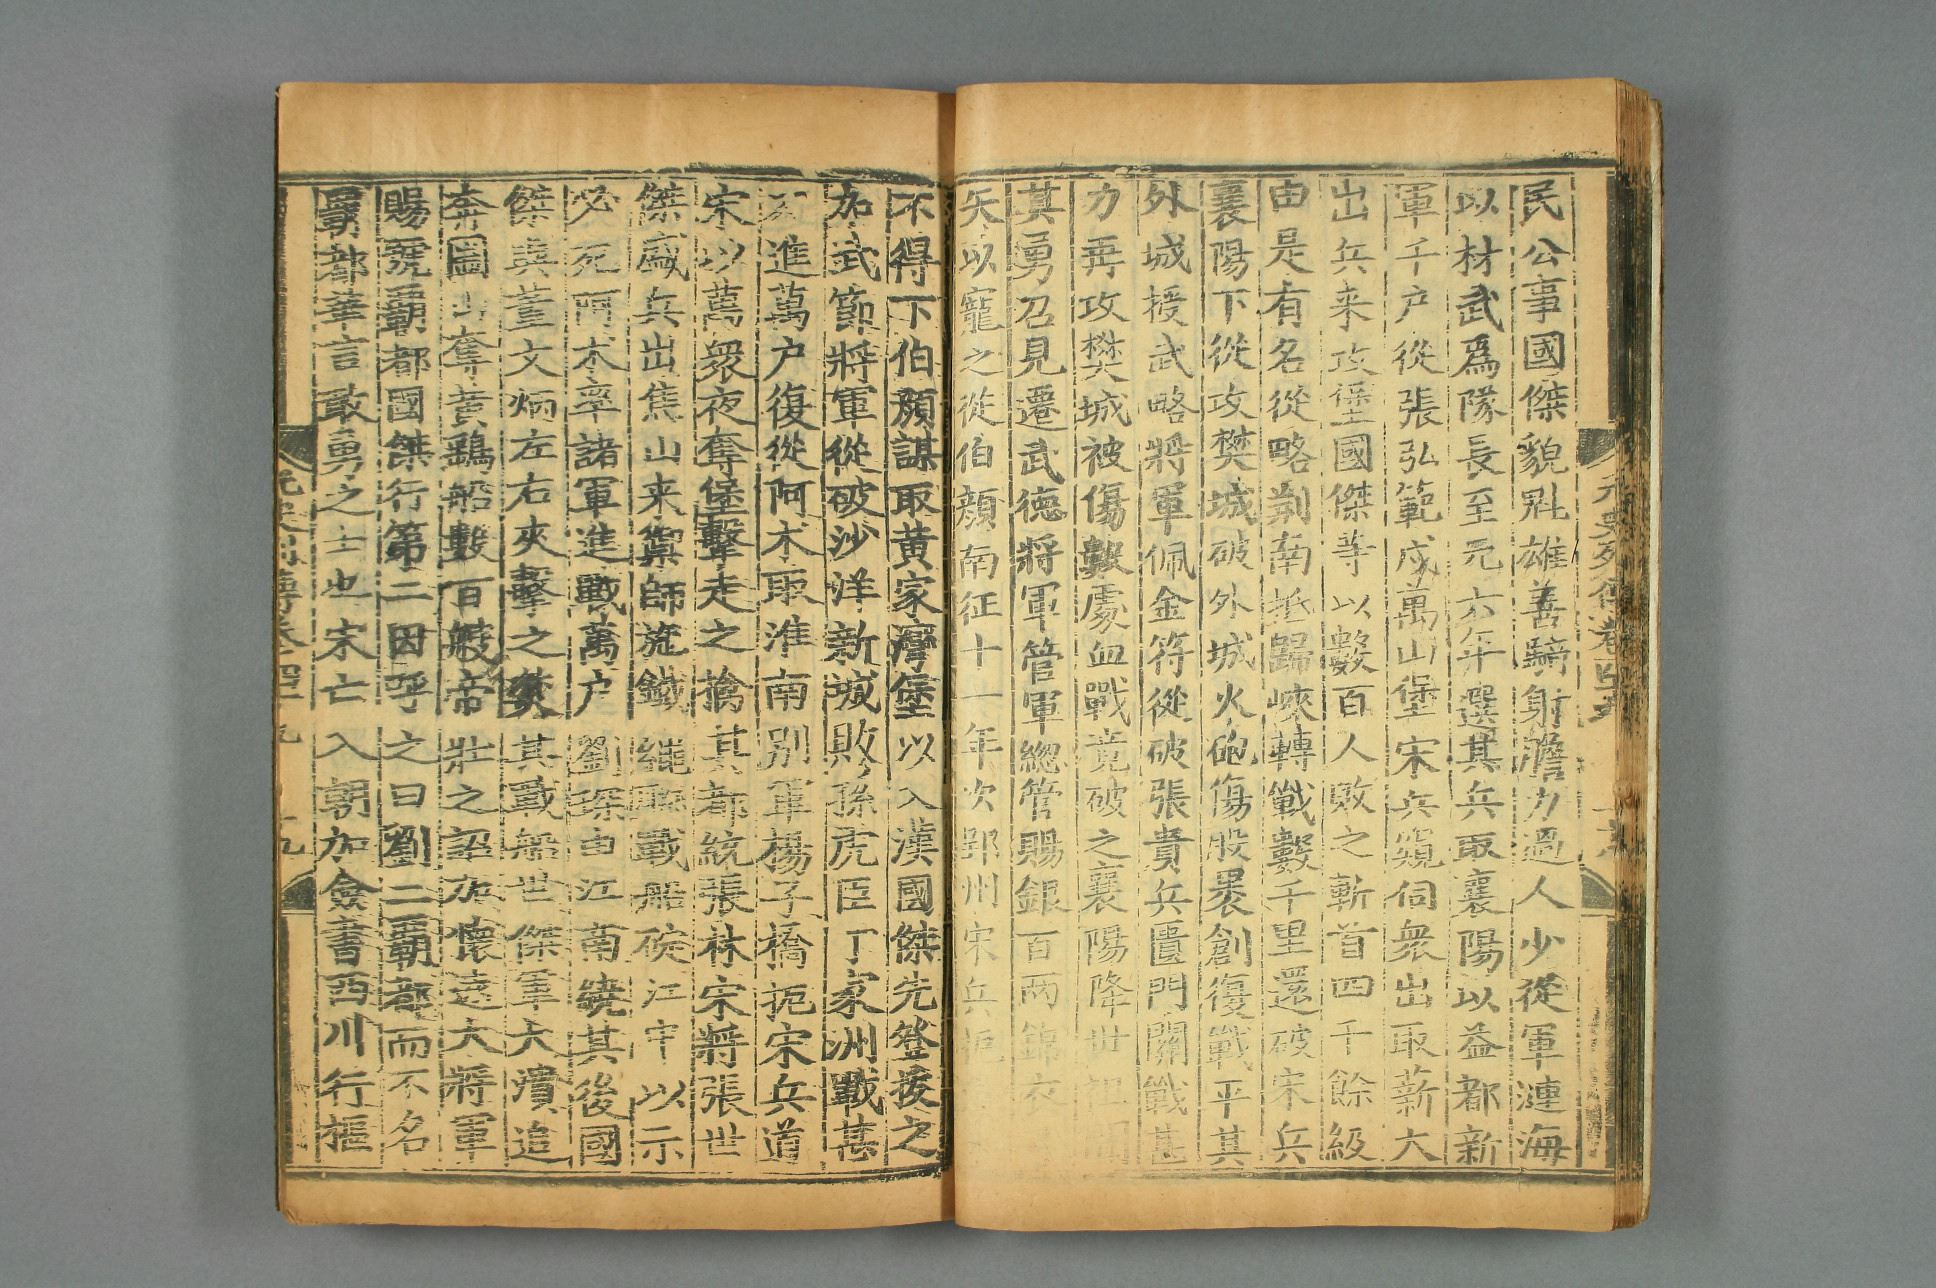 民公事國傑貌魁雄善騎射膽力過人少從軍漣海
以材武爲隊長至元六年選其兵取襄陽以益都新
軍千户從張弘範戍萬山堡宋兵窺伺衆出取薪大
出兵来攻堡國傑等以數百人敗之斬首四千餘級
由是有名從略荆南抵歸峽轉戰數千里還破宋兵
襄陽下從攻樊城破外城火砲傷股裹創復戰平其
外城授武略將軍佩金符從破張貴兵匱門關戰甚
力再攻樊城被傷數處血戰竟破之襄陽降世祖聞
其勇召見遷武德將軍管軍總管賜銀百兩錦衣
矢以寵之從伯顔南征十一年次郢州宋兵扼
不得下伯顔謀取黄家灣堡以入漢國傑先登拔之
加武節將軍從破沙洋新城敗孫虎臣丁家洲戰甚
進萬户復從阿术取淮南别軍楊子橋扼宋兵道
宋以萬衆夜奪堡擊走之擒其都統張林宋將張世
傑盛兵出焦山来禦師旋鐵繩聯戰船碇江中以示
必死阿术率諸軍進戰萬户劉琛由江南繞其後國
傑與董文炳左右夾擊之焚其戰船世傑軍大潰追
奔圌山奪黄鵠船數百艘帝壯之詔加懷遠大將軍
賜號覇都國傑行第二因呼之曰劉二覇都而不名
覇都華言敢勇之士也宋亡入朝加僉書西川行樞
元史列傳卷四十九
十九